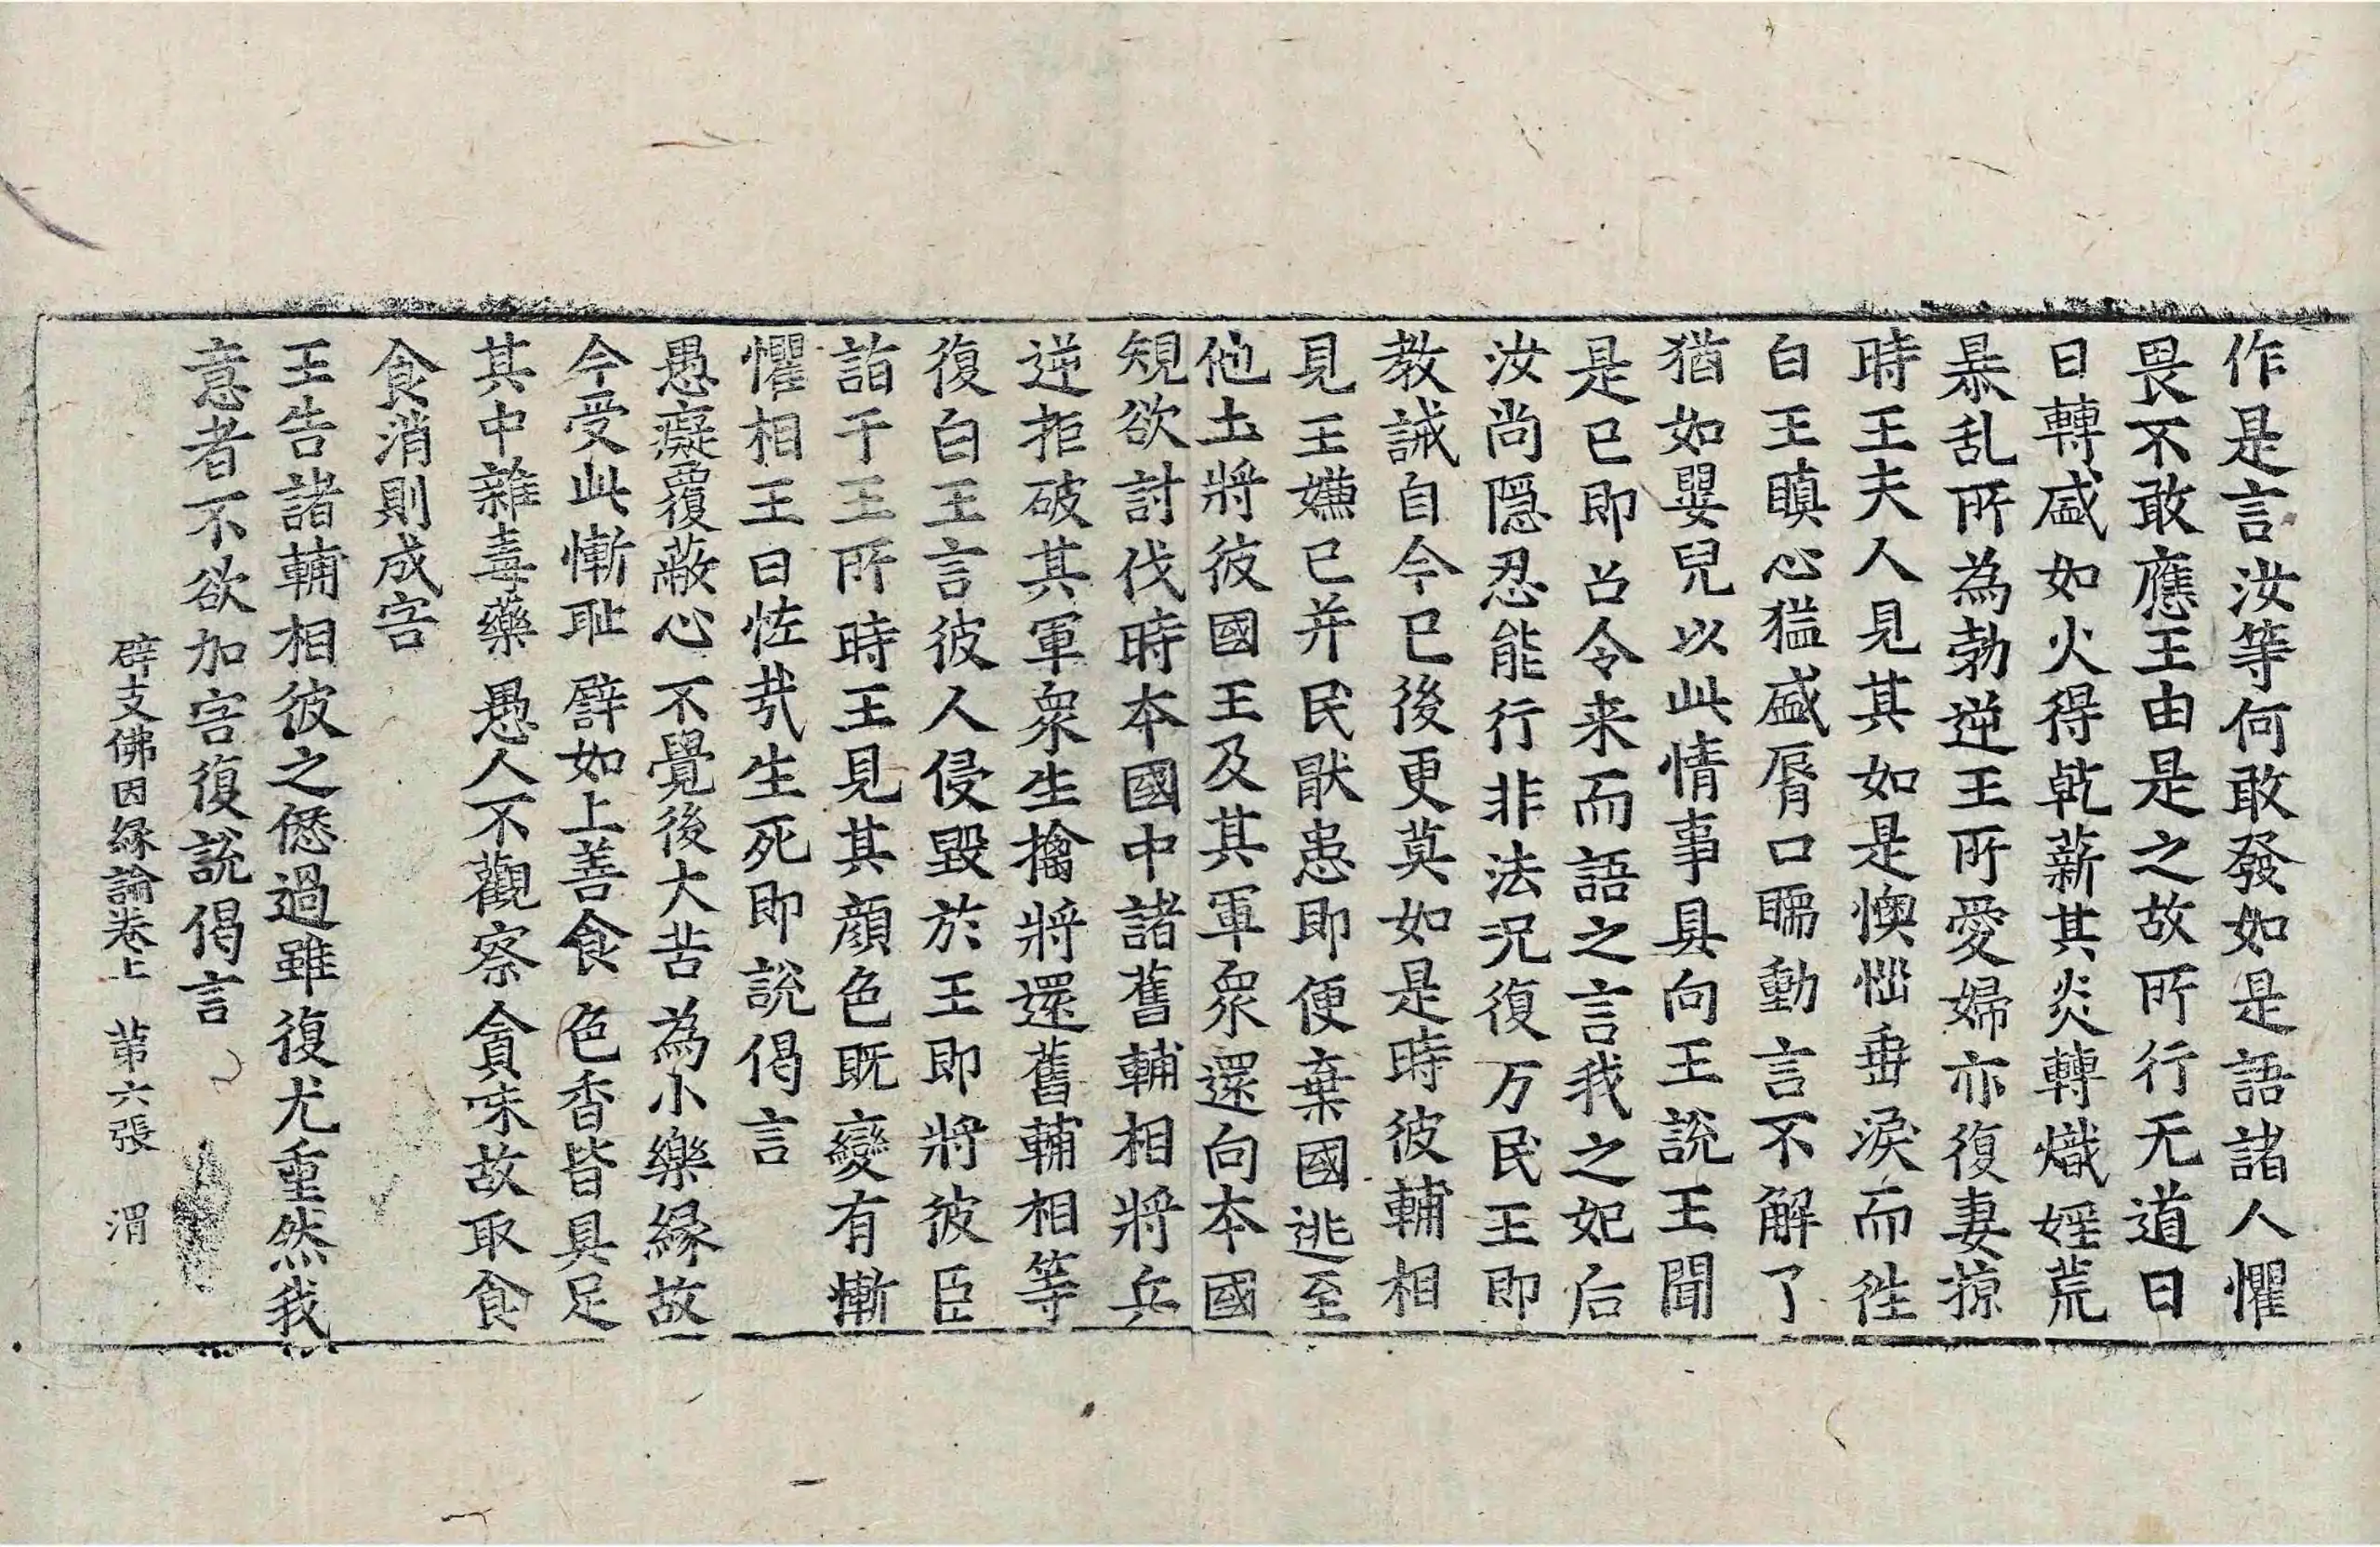 作是言汝等何敢發如是語諸人懼
畏不敢應王由是之故所行无道日
日轉盛如火得乾薪其炎轉熾婬荒
暴乱所為勃逆王所愛婦亦復妻掠
時王夫人見其如是懊惱垂淚而往
白王瞋心猛盛脣口𥆧動言不解了
猶如嬰兒以此情事具向王說王聞
是已即召令来而語之言我之妃后
汝尚隱忍能行非法況復万民王即
教誡自今已後更莫如是時彼輔相
見王嫌已并民猒患即便棄國逃至
他土將彼國王及其軍衆還向本國
規欲討伐時本國中諸舊輔相將兵
逆拒破其軍衆生擒將還舊輔相等
復白王言彼人侵毀於王即將彼臣
詣于王所時王見其顔色既變有慚
懼相王曰恠㢤生死即說偈言
愚癡覆蔽心 不覺後大苦 為小樂緣故
今受此慚耻 譬如上善食 色香皆具足
其中雜毒藥 愚人不觀察 貪味故取食
食消則成害
王告諸輔相彼之𠎝過雖復尤重然我
意者不欲加害復說偈言
辟支佛因緣論卷上 苐六張 渭